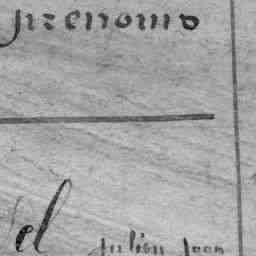 prenoms
el Julien Jean